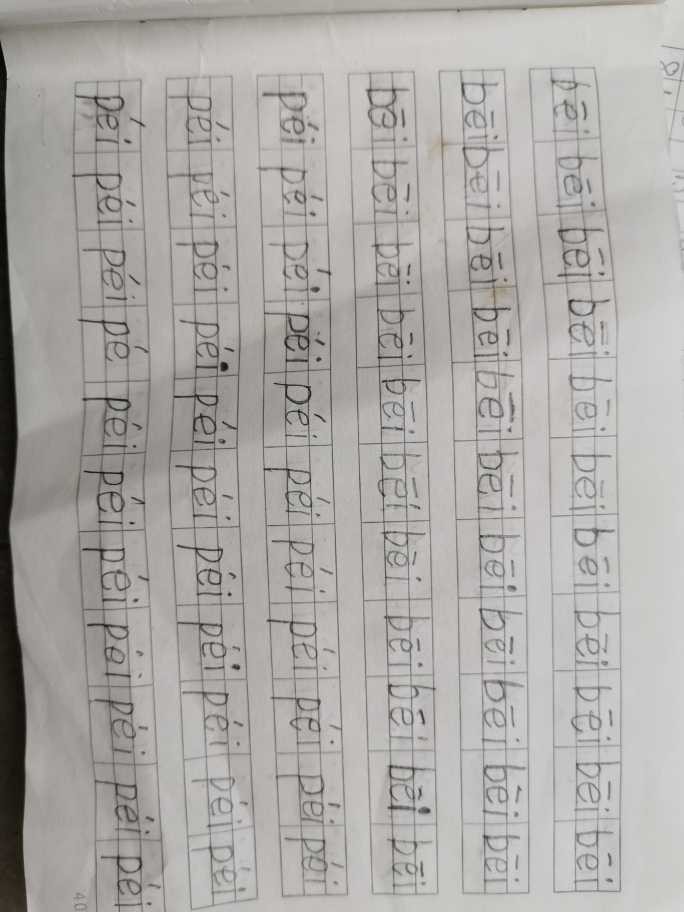 bēi bēi bēi bēi bēi bēi bēi bēi bēi bēi bēi
bēi bēi bēi bēi bēi bēi bēi bēi bēi bēi bēi
bēi bēi bēi bēi bēi bēi bēi bēi bēi bēi bēi
péi péi péi péi péi péi péi péi péi péi péi
péi péi péi péi péi péi péi péi péi péi péi
péi péi péi pé péi péi péi péi péi péi péi
40